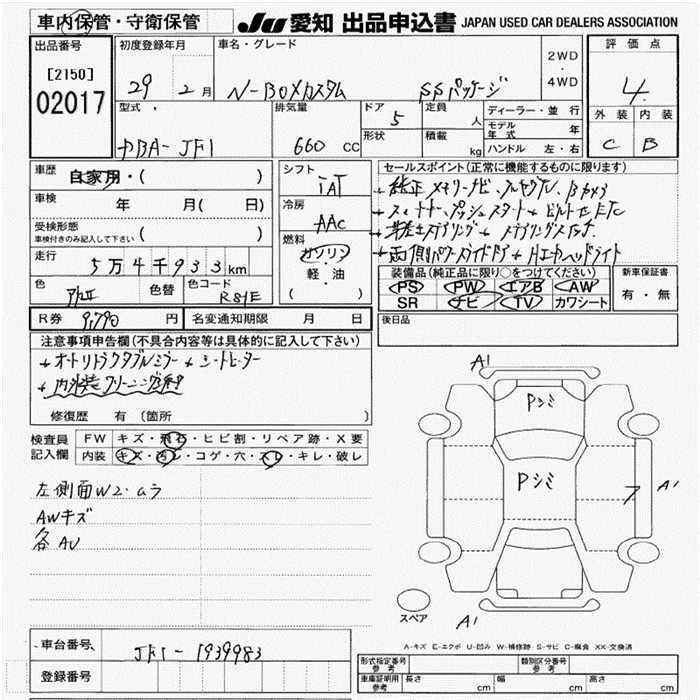 車内保管・守衛保管
JU 愛知 出品申込書 JAPAN USED CAR DEALERS ASSOCIATION
出品番号
[2150]
02017
初度登録年月
29年 2月
車名・グレード
N-BOXカスタム SSパッケージ
2WD
・
4WD
評価点
4
外装 内装
C B
型式
DBA-JF1
排気量
660 CC
ドア 5
形状
定員 人
積載 kg
ディーラー・並行
モデル年式 年
ハンドル 左・右
車歴
自家用・( )
車検 年 月( 日)
受検形態
車検付きのみ記入して下さい ( )
走行
5万4千933km
色 色替 色コード
R81E
シフト
IAT
冷房
AAC
燃料
ガソリン
軽・油
( )
セールスポイント(正常に機能するものに限ります)
純正メモリーナビ
スマートキー プッシュスタート ビルトインETC
両側パワースライドドア HIDヘッドライト
装備品(純正品に限り○をつけてください)
PS PW エアB AW
SR ナビ TV カワシート
新車保証書
有・無
R券 9,790円 名変通知期限 月 日
後日品
注意事項申告欄(不具合内容等は具体的に記入して下さい)
オートリトラクタブルミラー シートヒーター
内外装クリーニング済
修復歴 有(箇所 )
検査員記入欄
FW キズ・飛石・ヒビ割・リペア跡・X要
内装 キズ・汚レ・コゲ・穴・スレ・キレ・破レ
左側面W2・ムラ
AWキズ
各AU
A1
Pシミ
Pシミ
A1
スペア
A1
A-キズ E-エクボ U-凹み W-補修跡 S-サビ C-腐食 XX-交換済
車台番号 JF1-1939983
登録番号
形式指定番号 参考
類別区分番号 参考
車庫証明用 参考 長さ cm 幅 cm 高さ cm